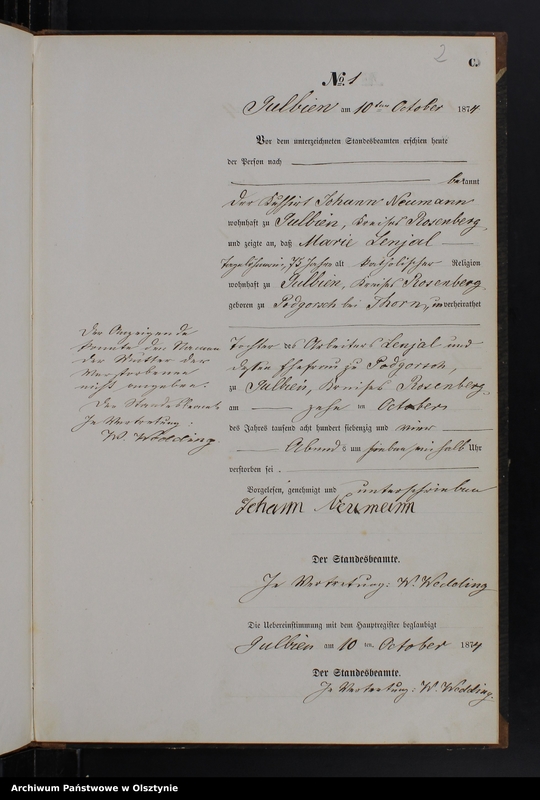 2
C.
No. 1
Gulbien am 10ten October 1874
Vor dem unterzeichneten Standesbeamten erschien heute
der Person nach
bekannt
der Johann Neumann
wohnhaft zu Gulbien, Kreises Rosenberg,
und zeigte an, daß Marie Lenjal
75 Jahre alt katholischer Religion
wohnhaft zu Gulbien, Kreises Rosenberg
geboren zu Podgorsch bei Thorn, unverheirathet
Tochter des Arbeiters Lenjal und
dessen Ehefrau zu Podgorsch,
zu Gulbien, Kreises Rosenberg,
am zehn ten October
des Jahres tausend acht hundert siebenzig und vier
Abends um sieben einhalb Uhr
verstorben sei.
Der Anzeigende
konnte die Namen
der Mutter der
Verstorbenen
nicht angeben.
Der Standesbeamte
In Vertretung:
W. Wedding
Vorgelesen, genehmigt und unterschrieben
Johann Neumann
Der Standesbeamte.
In Vertretung: W. Wedding
Die Uebereinstimmung mit dem Hauptregister beglaubigt
Gulbien am 10 ten October 1874
Der Standesbeamte.
In Vertretung: W. Wedding.
Archiwum Państwowe w Olsztynie